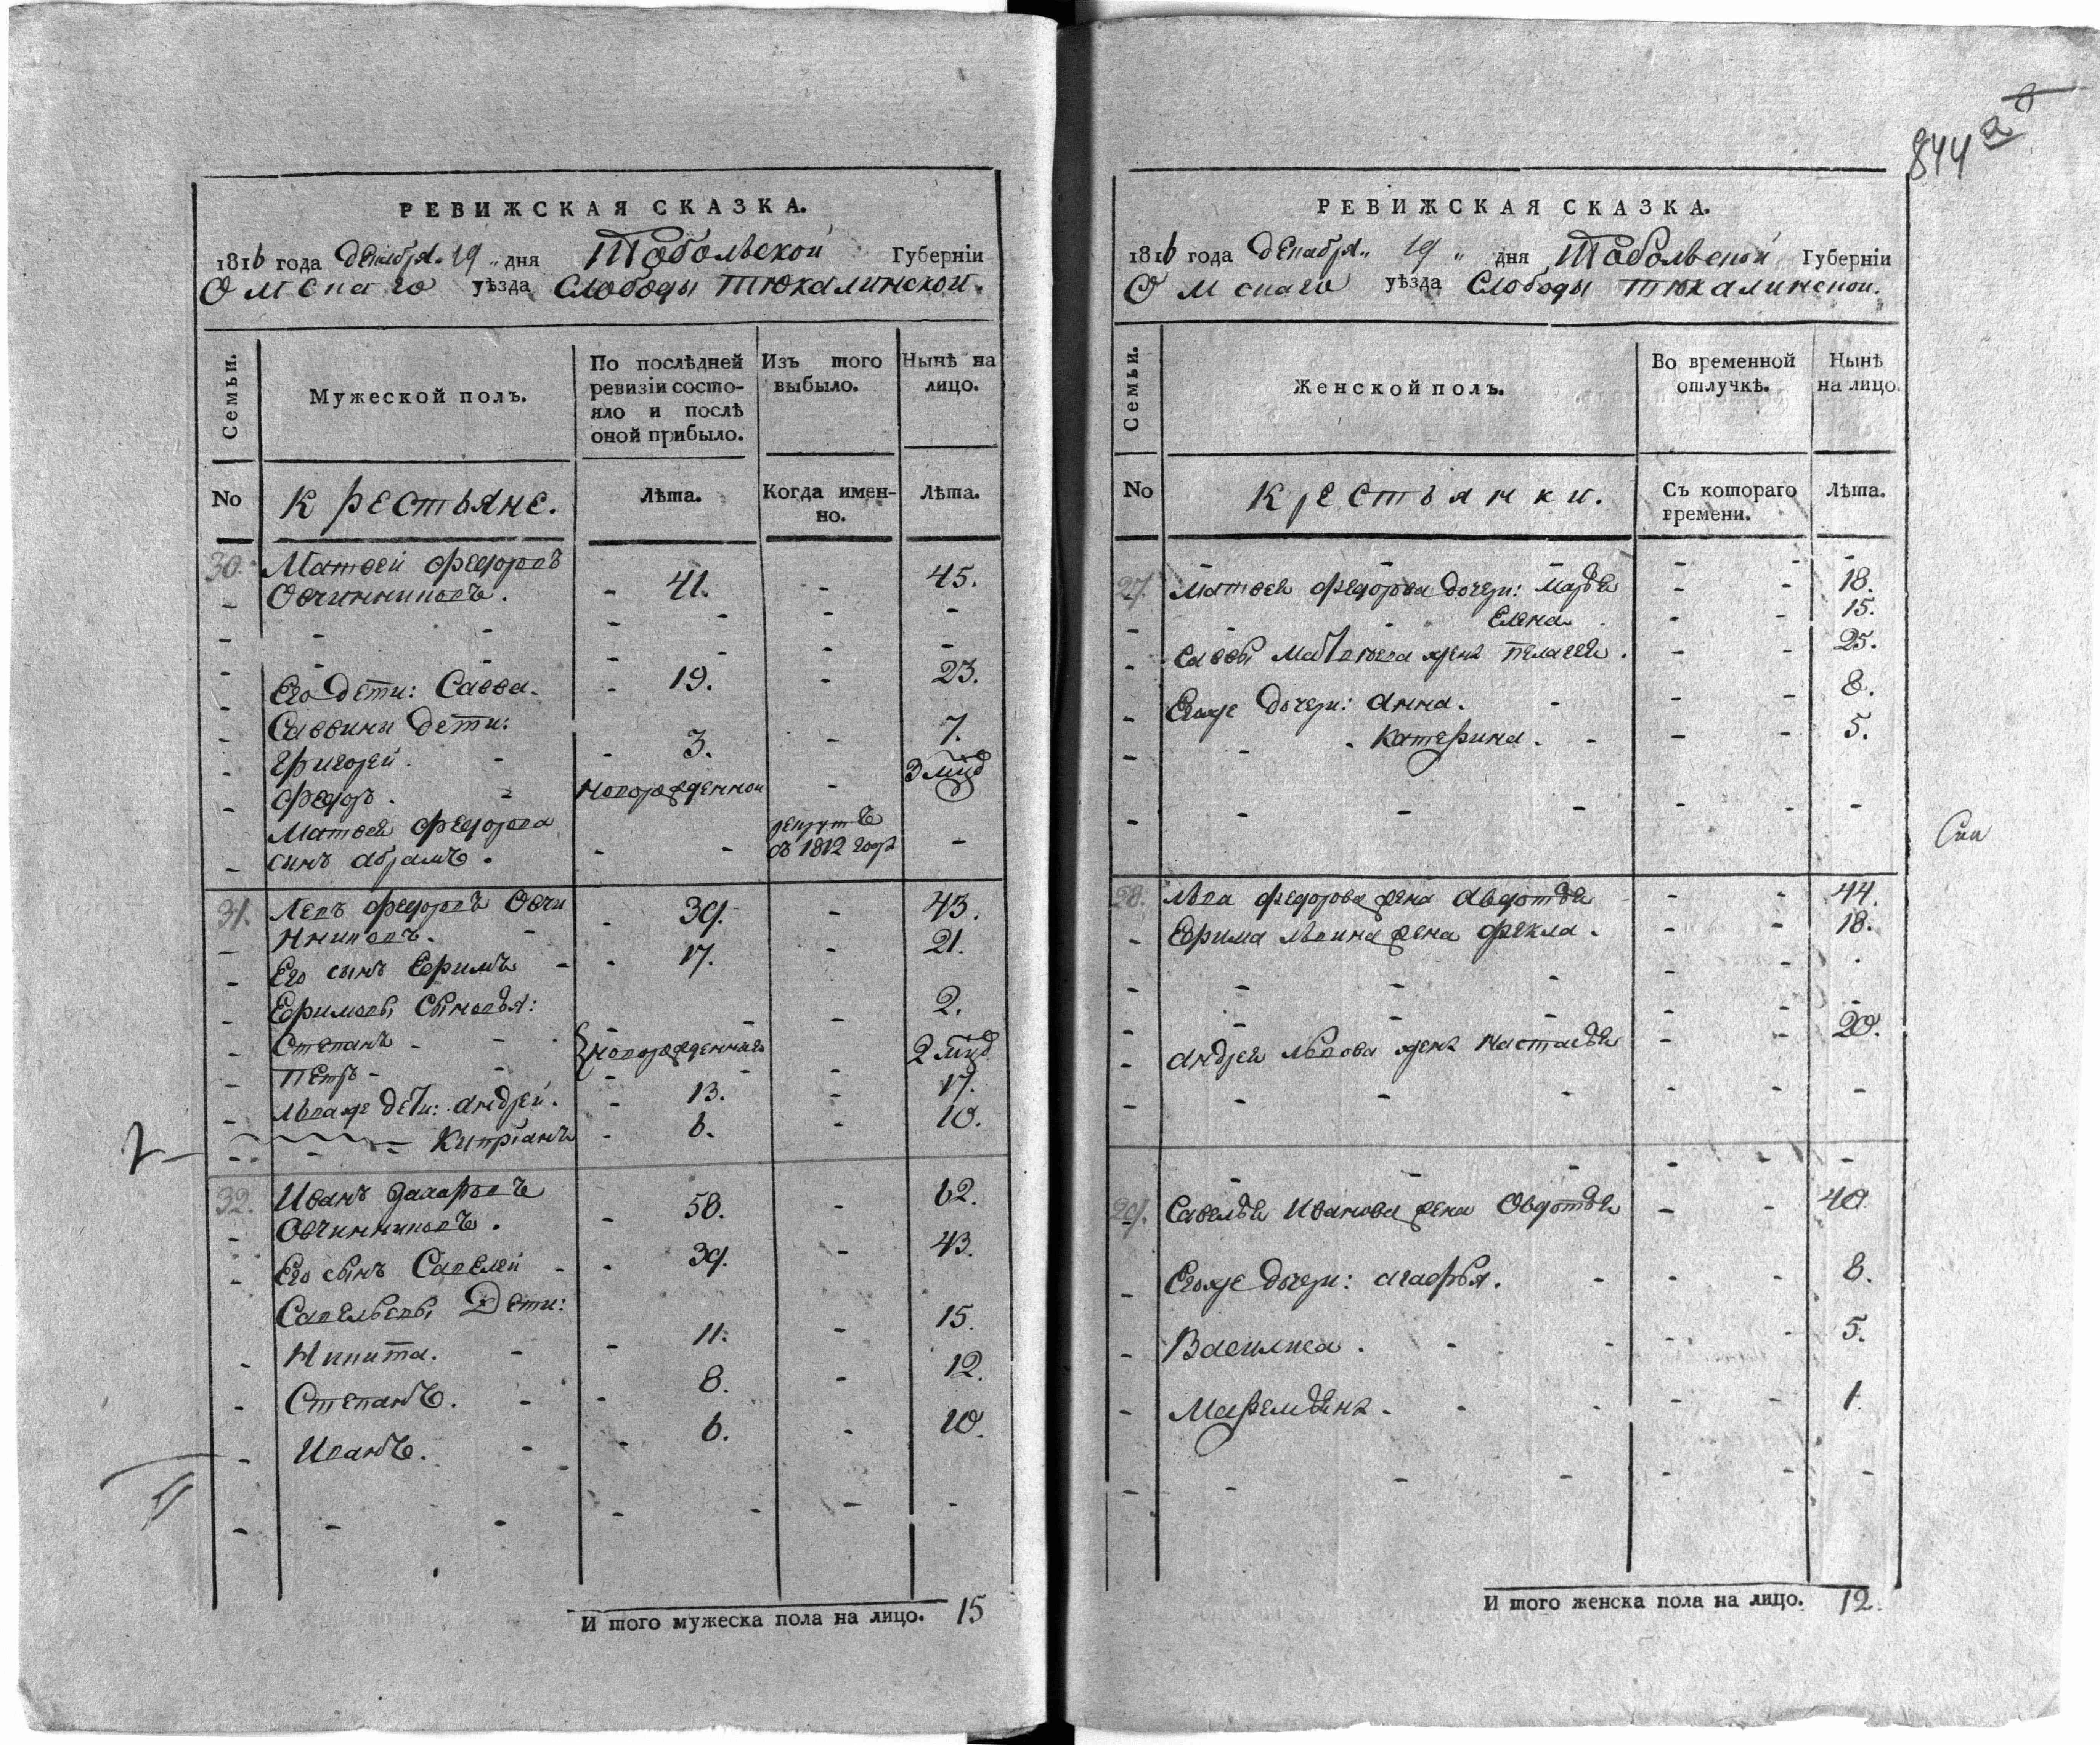 РЕВИЖСКАЯ СКАЗКА.
1816 года декабря 19 дня Тобольской Губерніи
Омскаго уѣзда Слободы Тюкалинской.
Семьи.
Мужеской полъ.
По послѣдней ревизіи состояло и послѣ оной прибыло.
Изъ того выбыло.
Нынѣ на лицо.
No
Крестьяне.
Лѣта.
Когда именно.
Лѣта.
30. Матвей Федоровъ
Овчинниковъ. 41. 45.
Его дети: Савва. 19. 23.
Саввины дети:
Григорей. 3. 7.
Федоръ. новорожденной 3 мцд
Матвея Федорова
сынъ Абрамъ. въ 1812 году
31. Левъ Федоровъ Овчи
нниковъ. 39. 43.
Его сынъ Ефимъ 17. 21.
Ефимовы Сыновья:
Степанъ 2.
Петръ новорожденные 2 мцд
Льва же дети: Андрей. 13. 17.
Кипріанъ 6. 10.
32. Иванъ Захаровъ
Овчинниковъ. 58. 62.
Его сынъ Савелей 39. 43.
Савельевы Дети:
Никита. 11. 15.
Степанъ. 8. 12.
Иванъ. 6. 10.
И того мужеска пола на лицо. 15
844
РЕВИЖСКАЯ СКАЗКА.
1816 года декабря 19 дня Тобольской Губерніи
Омскаго уѣзда Слободы Тюкалинской.
Семьи.
Женской полъ.
Во временной отлучкѣ.
Нынѣ на лицо.
No
Крестьянки.
Съ котораго времени.
Лѣта.
27. Матвея Федорова дочери: Марья 18.
Елена 15.
Саввы Матвеева жена Пелагея. 25.
Его же дочери: Анна. 8.
Катерина. 5.
28. Льва Федорова жена Авдотья 44.
Ефима Львина жена Фекла. 18.
Андрея Львова жена Настасья 20.
29. Савелья Иванова жена Овдотья 40.
Его же дочери: Агафья. 8.
Василиса. 5.
Маремьяна. 1.
И того женска пола на лицо. 12.